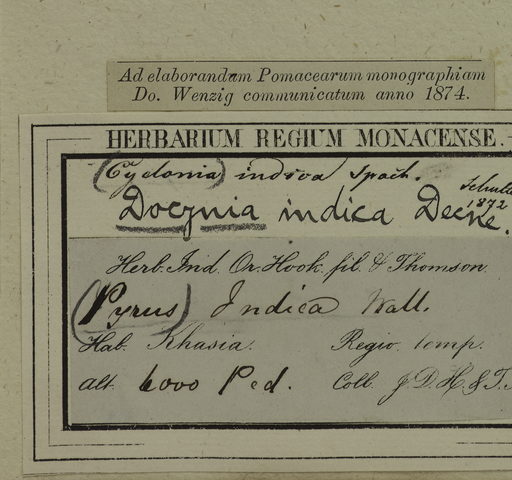 Ad elaborandum Pomacearum monographiam
Do. Wenzig communicatum anno 1874.
HERBARIUM REGIUM MONACENSE.
(Cydonia) indica Spach.
1872
Docynia indica Decne.
Herb. Ind. Or. Hook. fil. & Thomson.
(Pyrus) Indica Wall.
Hab. Khasia. Regio. temp.
Alt. 6000 Ped. Coll. J.D.H. & T.T.